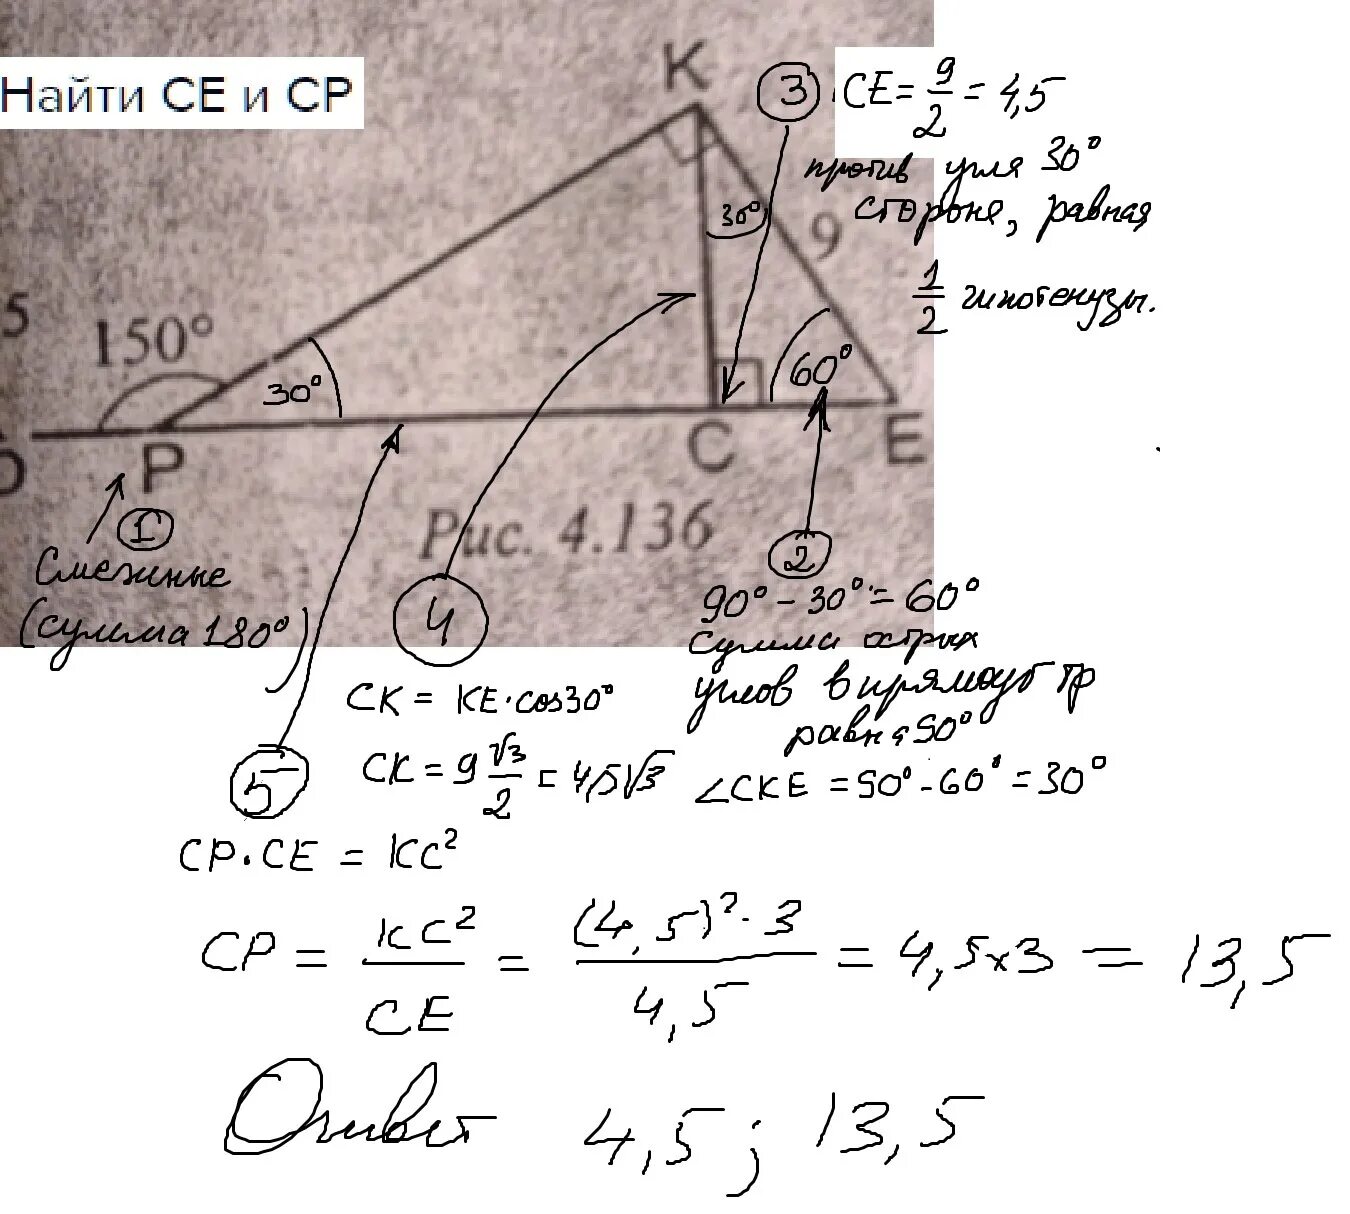 Найти CE и CP
K
3 CE = 9/2 = 4,5
против угля 30°
стороня, равная
1/2 гипотенузы.
30°
9
5
150°
30°
60°
P
C
E
Рис. 4.136
1
Смежные
(сумма 180°)
2
90° - 30° = 60°
сумма острых
углов в прямоуг тр
равна 90°
∠CKE = 90° - 60° = 30°
4
CK = KE · cos30°
CK = 9 √3/2 = 4,5√3
5
CP · CE = KC²
CP = KC²/CE = (4,5)² · 3/4,5 = 4,5 x 3 = 13,5
Ответ 4,5; 13,5